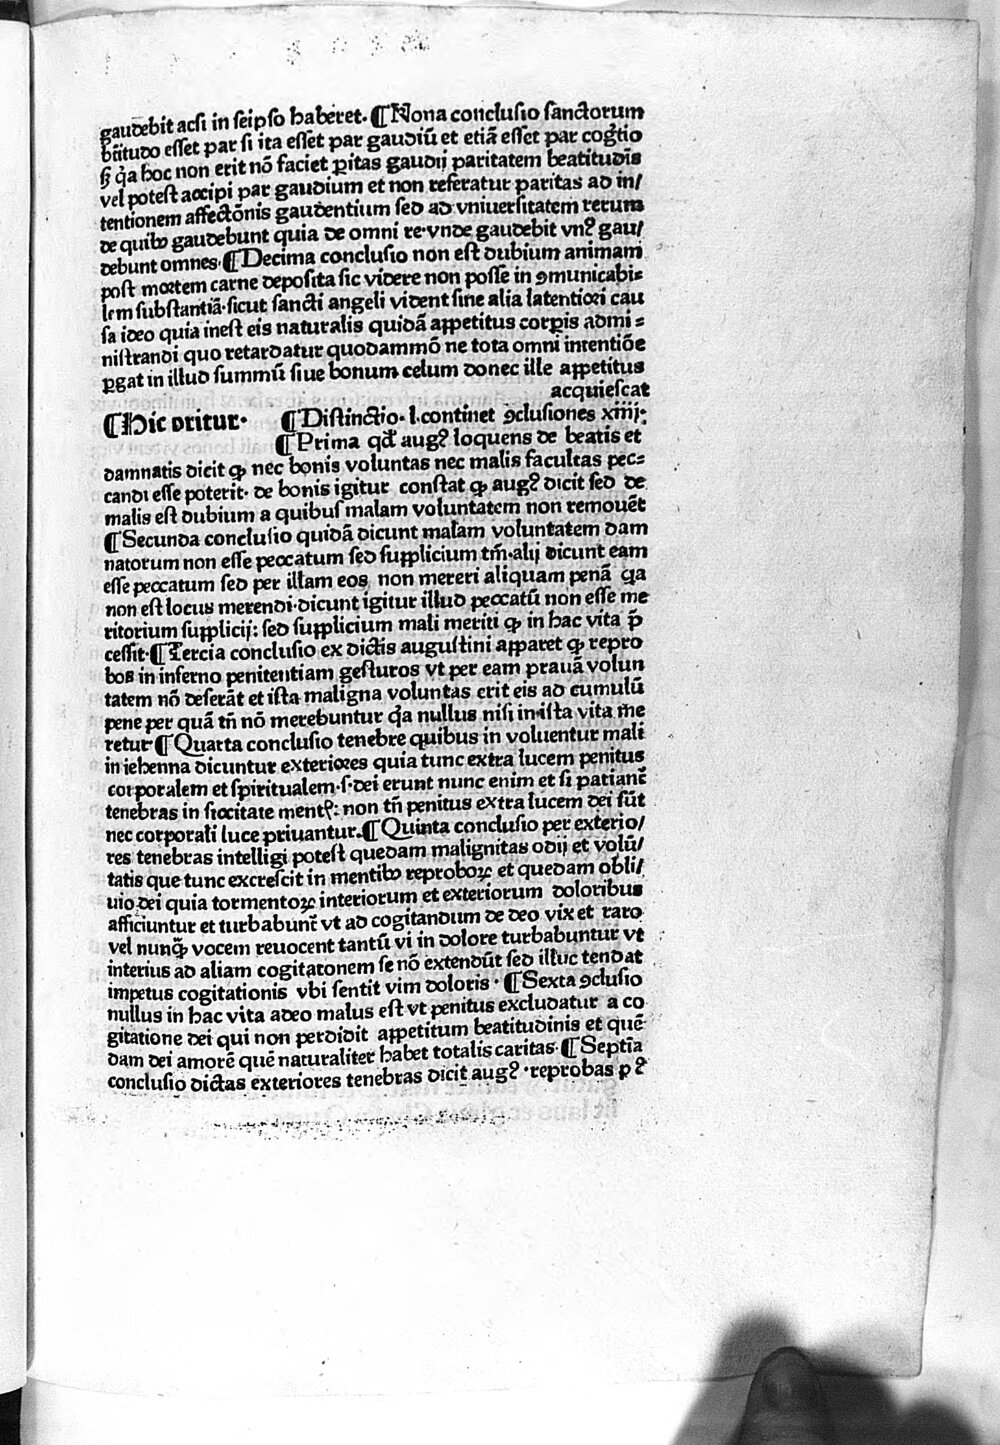 gaudebit acsi in seipso haberet. ¶ Nona conclusio sanctorum
btitudo esset par si ita esset par gaudiū et etiā esset par cogtio
sꝫ qa hoc non erit nō faciet ꝑitas gaudij paritatem beatitudīs
vel potest accipi par gaudium et non referatur paritas ad in/
tentionem affectōnis gaudentium sed ad vniuersitatem rerum
de quibꝰ gaudebunt quia de omni re·vnde gaudebit vnꝰ gau/
debunt omnes·¶ Decima conclusio non est dubium animam
post mortem carne deposita sic videre non posse in ꝯmunicabi=
lem substantiā·sicut sancti angeli vident sine alia latentiori cau
sa ideo quia inest eis naturalis quidā appetitus corpis admi=
nistrandi quo retardatur quodammō ne tota omni intentiōe
ꝑgat in illud summū siue bonum celum donec ille appetitus
acquiescat
¶ Hic oritur· ¶ Distinctio· l.continet ꝯclusiones xiiij·
¶ Prima qđ augꝰ loquens de beatis et
damnatis dicit ꝙ nec bonis voluntas nec malis facultas pec=
candi esse poterit· de bonis igitur constat ꝙ augꝰ dicit sed de
malis est dubium a quibus malam voluntatem non remouēt
¶ Secunda conclusio quidā dicunt malam voluntatem dam
natorum non esse peccatum sed supplicium tm̄·alij dicunt eam
esse peccatum sed per illam eos non mereri aliquam penā qa
non est locus merendi·dicunt igitur illud peccatū non esse me
ritorium supplicij: sed supplicium mali meriti ꝙ in hac vita p̄
cessit·¶ Tercia conclusio ex dictis augustini apparet ꝙ repro
bos in inferno penitentiam gesturos vt per eam prauā volun
tatem nō deserāt et ista maligna voluntas erit eis ad cumulū
pene per quā tn̄ nō merebuntur qa nullus nisi in·ista vita me
retur ¶ Quarta conclusio tenebre quibus in voluentur mali
in iehenna dicuntur exteriores quia tunc extra lucem penitus
corporalem et spiritualem·s·dei erunt nunc enim et si patianť
tenebras in secitate mentꝭ: non tn̄ penitus extra lucem dei sūt
nec corporali luce priuantur.¶ Quinta conclusio per exterio/
res tenebras intelligi potest quedam malignitas odij et volū/
tatis que tunc excrescit in mentibꝰ reproboꝝ et quedam obli/
uio dei quia tormentoꝝ interiorum et exteriorum doloribus
afficiuntur et turbabunť vt ad cogitandum de deo vix et raro
vel nunꝙ̄ vocem reuocent tantū vi in dolore turbabuntur vt
interius ad aliam cogitatonem se nō extendūt sed illuc tendat
impetus cogitationis vbi sentit vim doloris · ¶ Sexta ꝯclusio
nullus in hac vita adeo malus est vt penitus excludatur a co
gitatione dei qui non perdidit appetitum beatitudinis et quē=
dam dei amorē quē naturaliter habet totalis caritas·¶ Septīa
conclusio dictas exteriores tenebras dicit augꝰ ·reprobas pꝰ